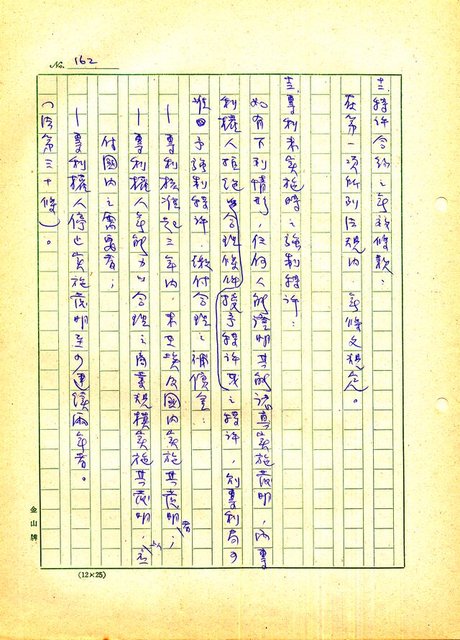 No. 162
特許合約之無效條款：
在第一項所列法規內，無條文規定。
專利未實施時之強制特許：
如有下列情形，任何人能證明其能認真實施發明，而專
利權人拒絕以合理條件授予特許
之特許，則專利局可
准予強制特許，繳付合理之補償金：
—專利核准起三年內，未在埃及國內實施其發明者；
—專利權人無能力以合理之商業規模實施其發明，以
付國內之需要者；
—專利權人停止實施發明至少連續兩年者。
（法第三十條）。
金山牌
(12×25)